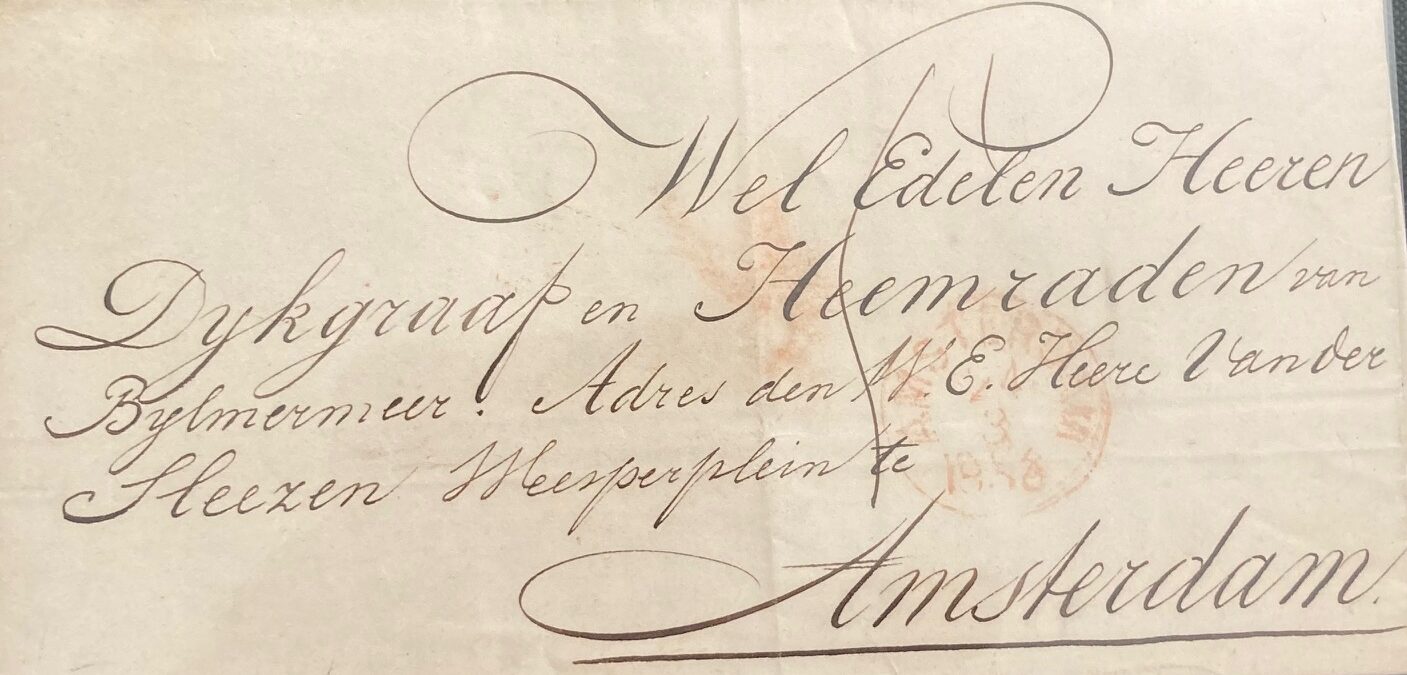 Wel Edelen Heeren
Dykgraaf en Heemraden van
Bylmermeer. Adres den W. E. Heere Vander
Sleezen Weesperplein te
Amsterdam.
AMSTERDAM
1858